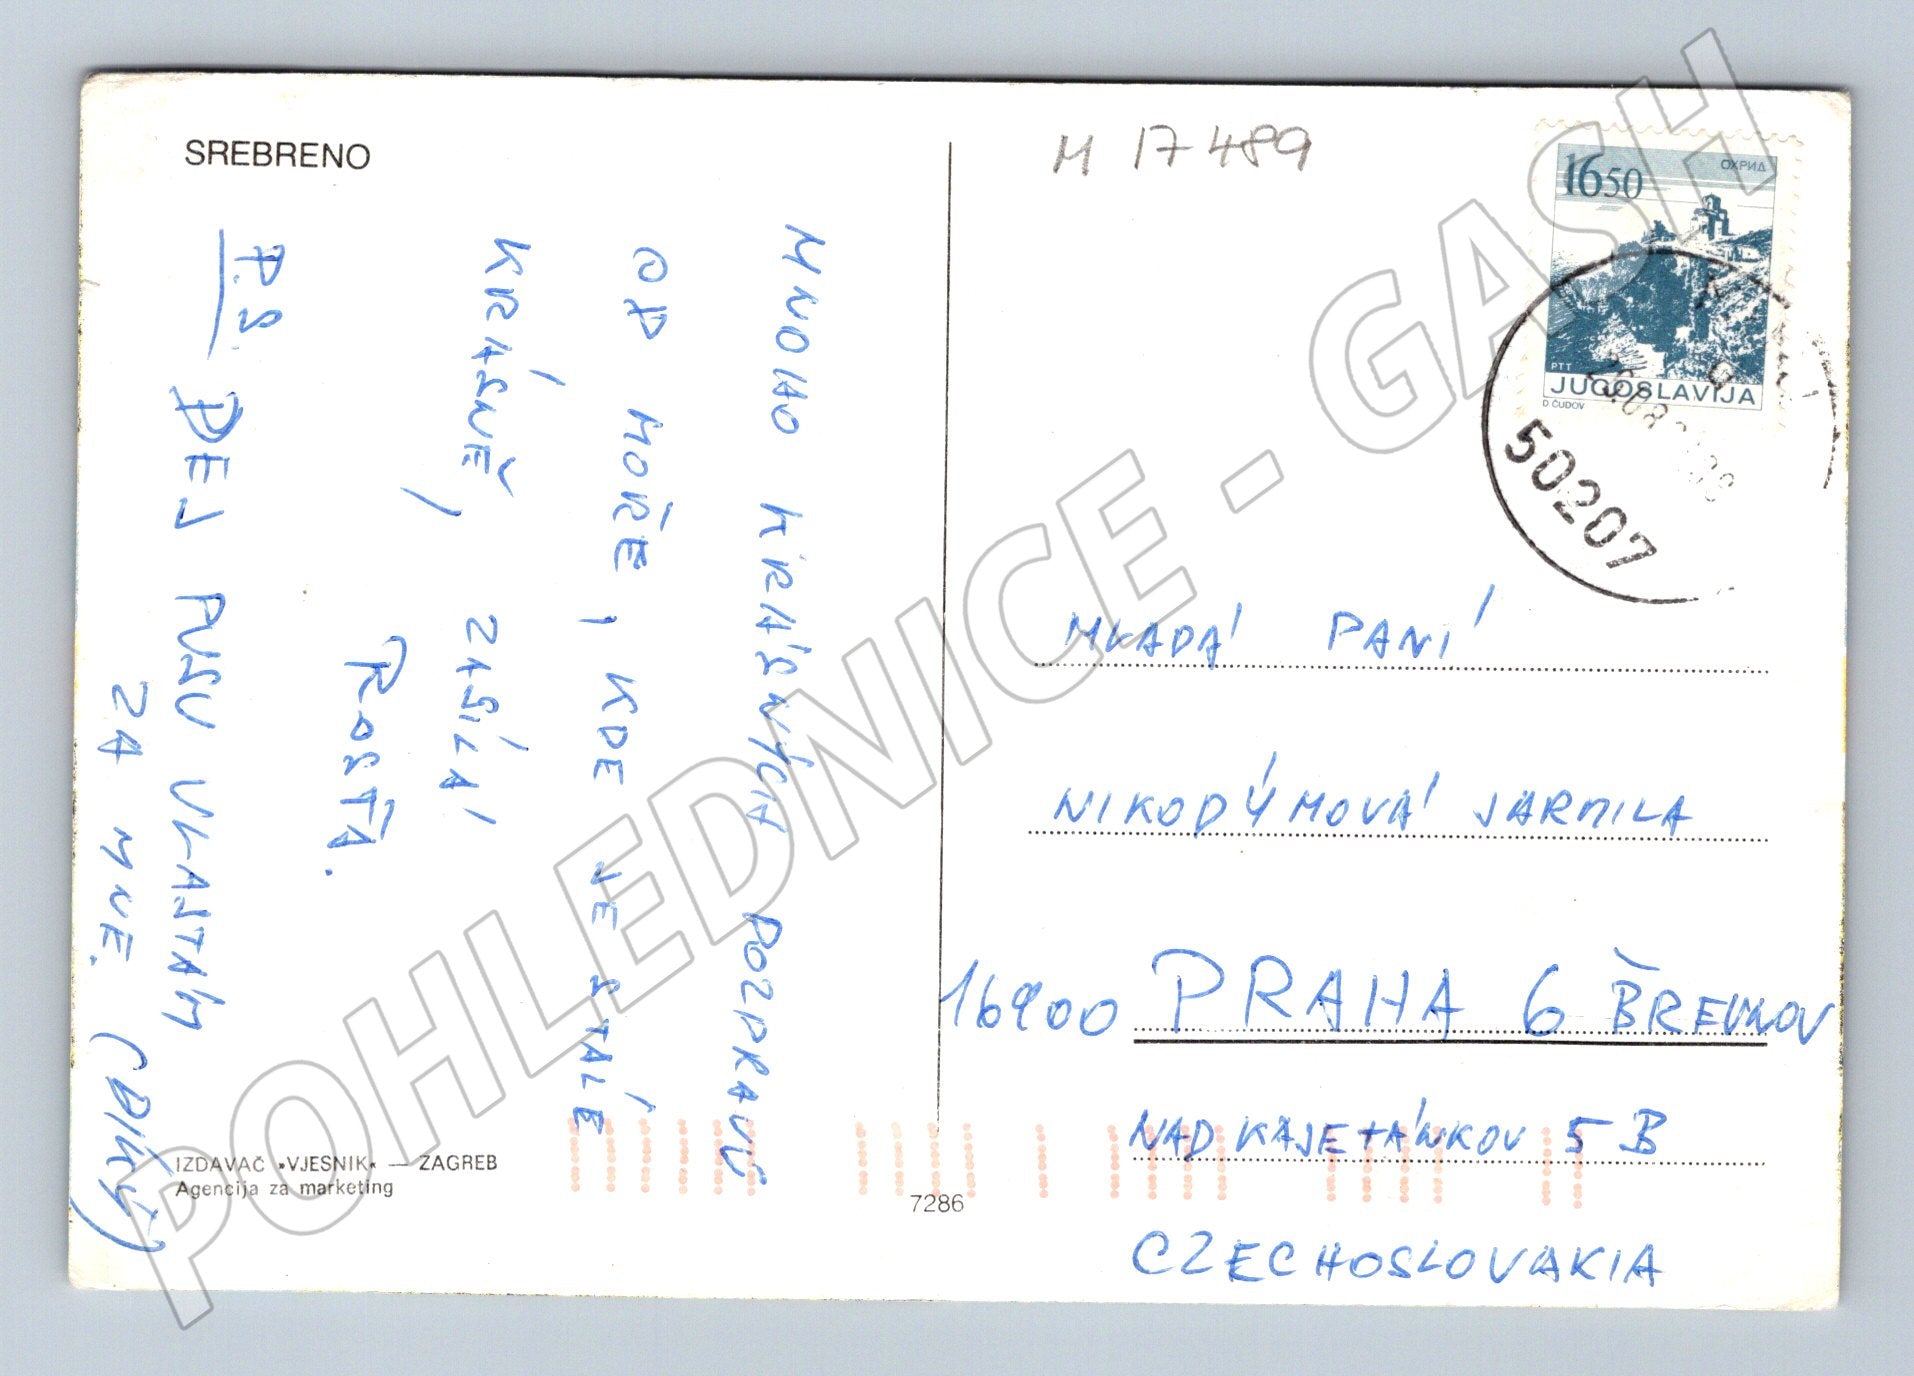 SREBRENO
MNOHO KRÁSNÝCH POZDRAVŮ
OD MOŘE, KDE JE STÁLE
KRÁSNĚ,
ZASÍLÁ
ROSŤA.
P.S.
DEJ PUSU VLASTÁM
ZA MNE. (DÍKY)
IZDAVAČ »VJESNIK« — ZAGREB
Agencija za marketing
7286
M 17489
1650
ОХРИД
PTT
JUGOSLAVIJA
D. ČUDOV
50207
MLADÁ PANÍ
NIKODÝMOVÁ JARMILA
16900 PRAHA 6 BŘEVNOV
NAD KAJETÁNKOU 5B
CZECHOSLOVAKIA
POHLEDNICE - GASH